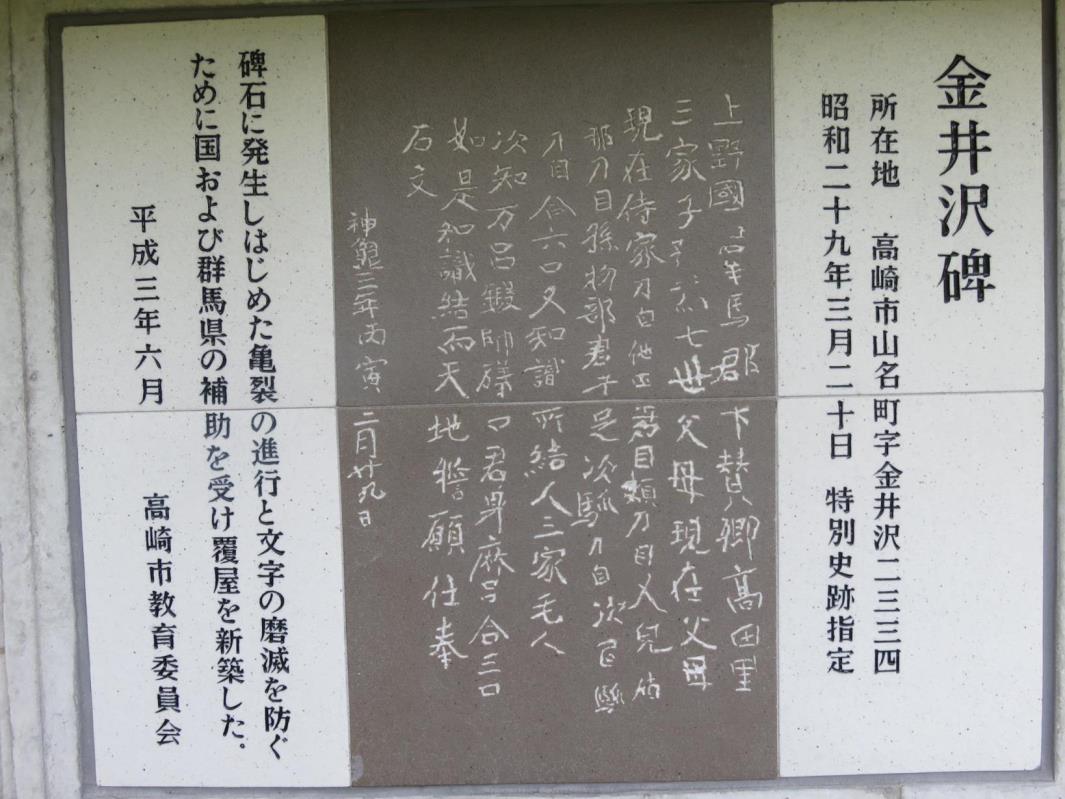 金井沢碑
所在地 高崎市山名町字金井沢二三三四
昭和二十九年三月二十日 特別史跡指定
上野國羣馬郡下賛郷高田里
三家子孫 七世父母現在父母
現在侍家刀自他田君目頬刀自又兒加
那刀自孫物部君午足次馴刀自次乙馴
刀自合六口又知識所結人三家毛人
次知万呂鍛師礒口君身麻呂合三口
如是知識結而天地誓願仕奉
石文
神龜三年丙寅二月廿九日
碑石に発生しはじめた亀裂の進行と文字の磨滅を防ぐ
ために国および群馬県の補助を受け覆屋を新築した。
平成三年六月 高崎市教育委員会